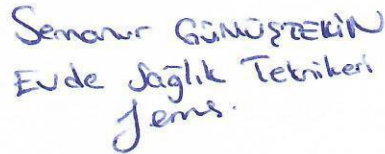 Semanur GÜMÜŞTEKİN
Evde Sağlık Teknikeri